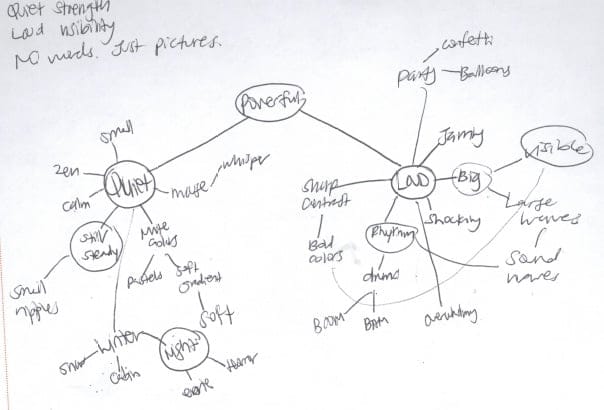 Quiet Strength
Loud visibility
No words. Just pictures.
confetti
Party
Balloons
Powerful
small
Jarring
whisper
visible
zen
Quiet
mouse
sharp
contrast
LOUD
Big
calm
Large
waves
still
steady
Mute
colors
Shocking
Rhythm
Bad
colors
Sound
waves
Pastels
soft
gradient
drums
small
ripples
soft
BOOM
BAM
Winter
Night
snow
cabin
eerie